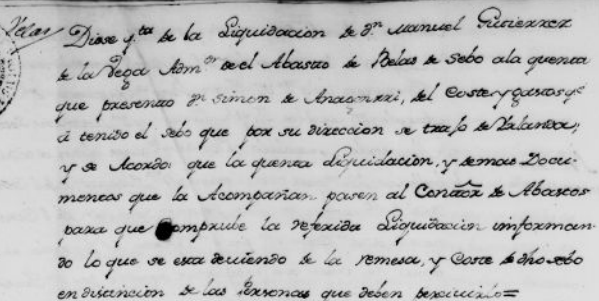 Velas
Diose qta de la Liquidacion de Dn Manuel Gutierrez
de la Vega Admor de el Abasto de Belas de Sebo ala quenta
que presento Dn Simon de Anagorri, del Coste y gastos qe
â tenido el sebo que por su direccion se trajo de Yrlanda,
y se Acordo: que la quenta Liquidacion, y demas Docu-
mentos que la Acompañan pasen al Contador de Abastos
para que Compruebe la referida Liquidacion informan-
do lo que se esta deviendo de la remesa, y Coste de dho sebo
en distincion de las Personas que deben percivirlo=